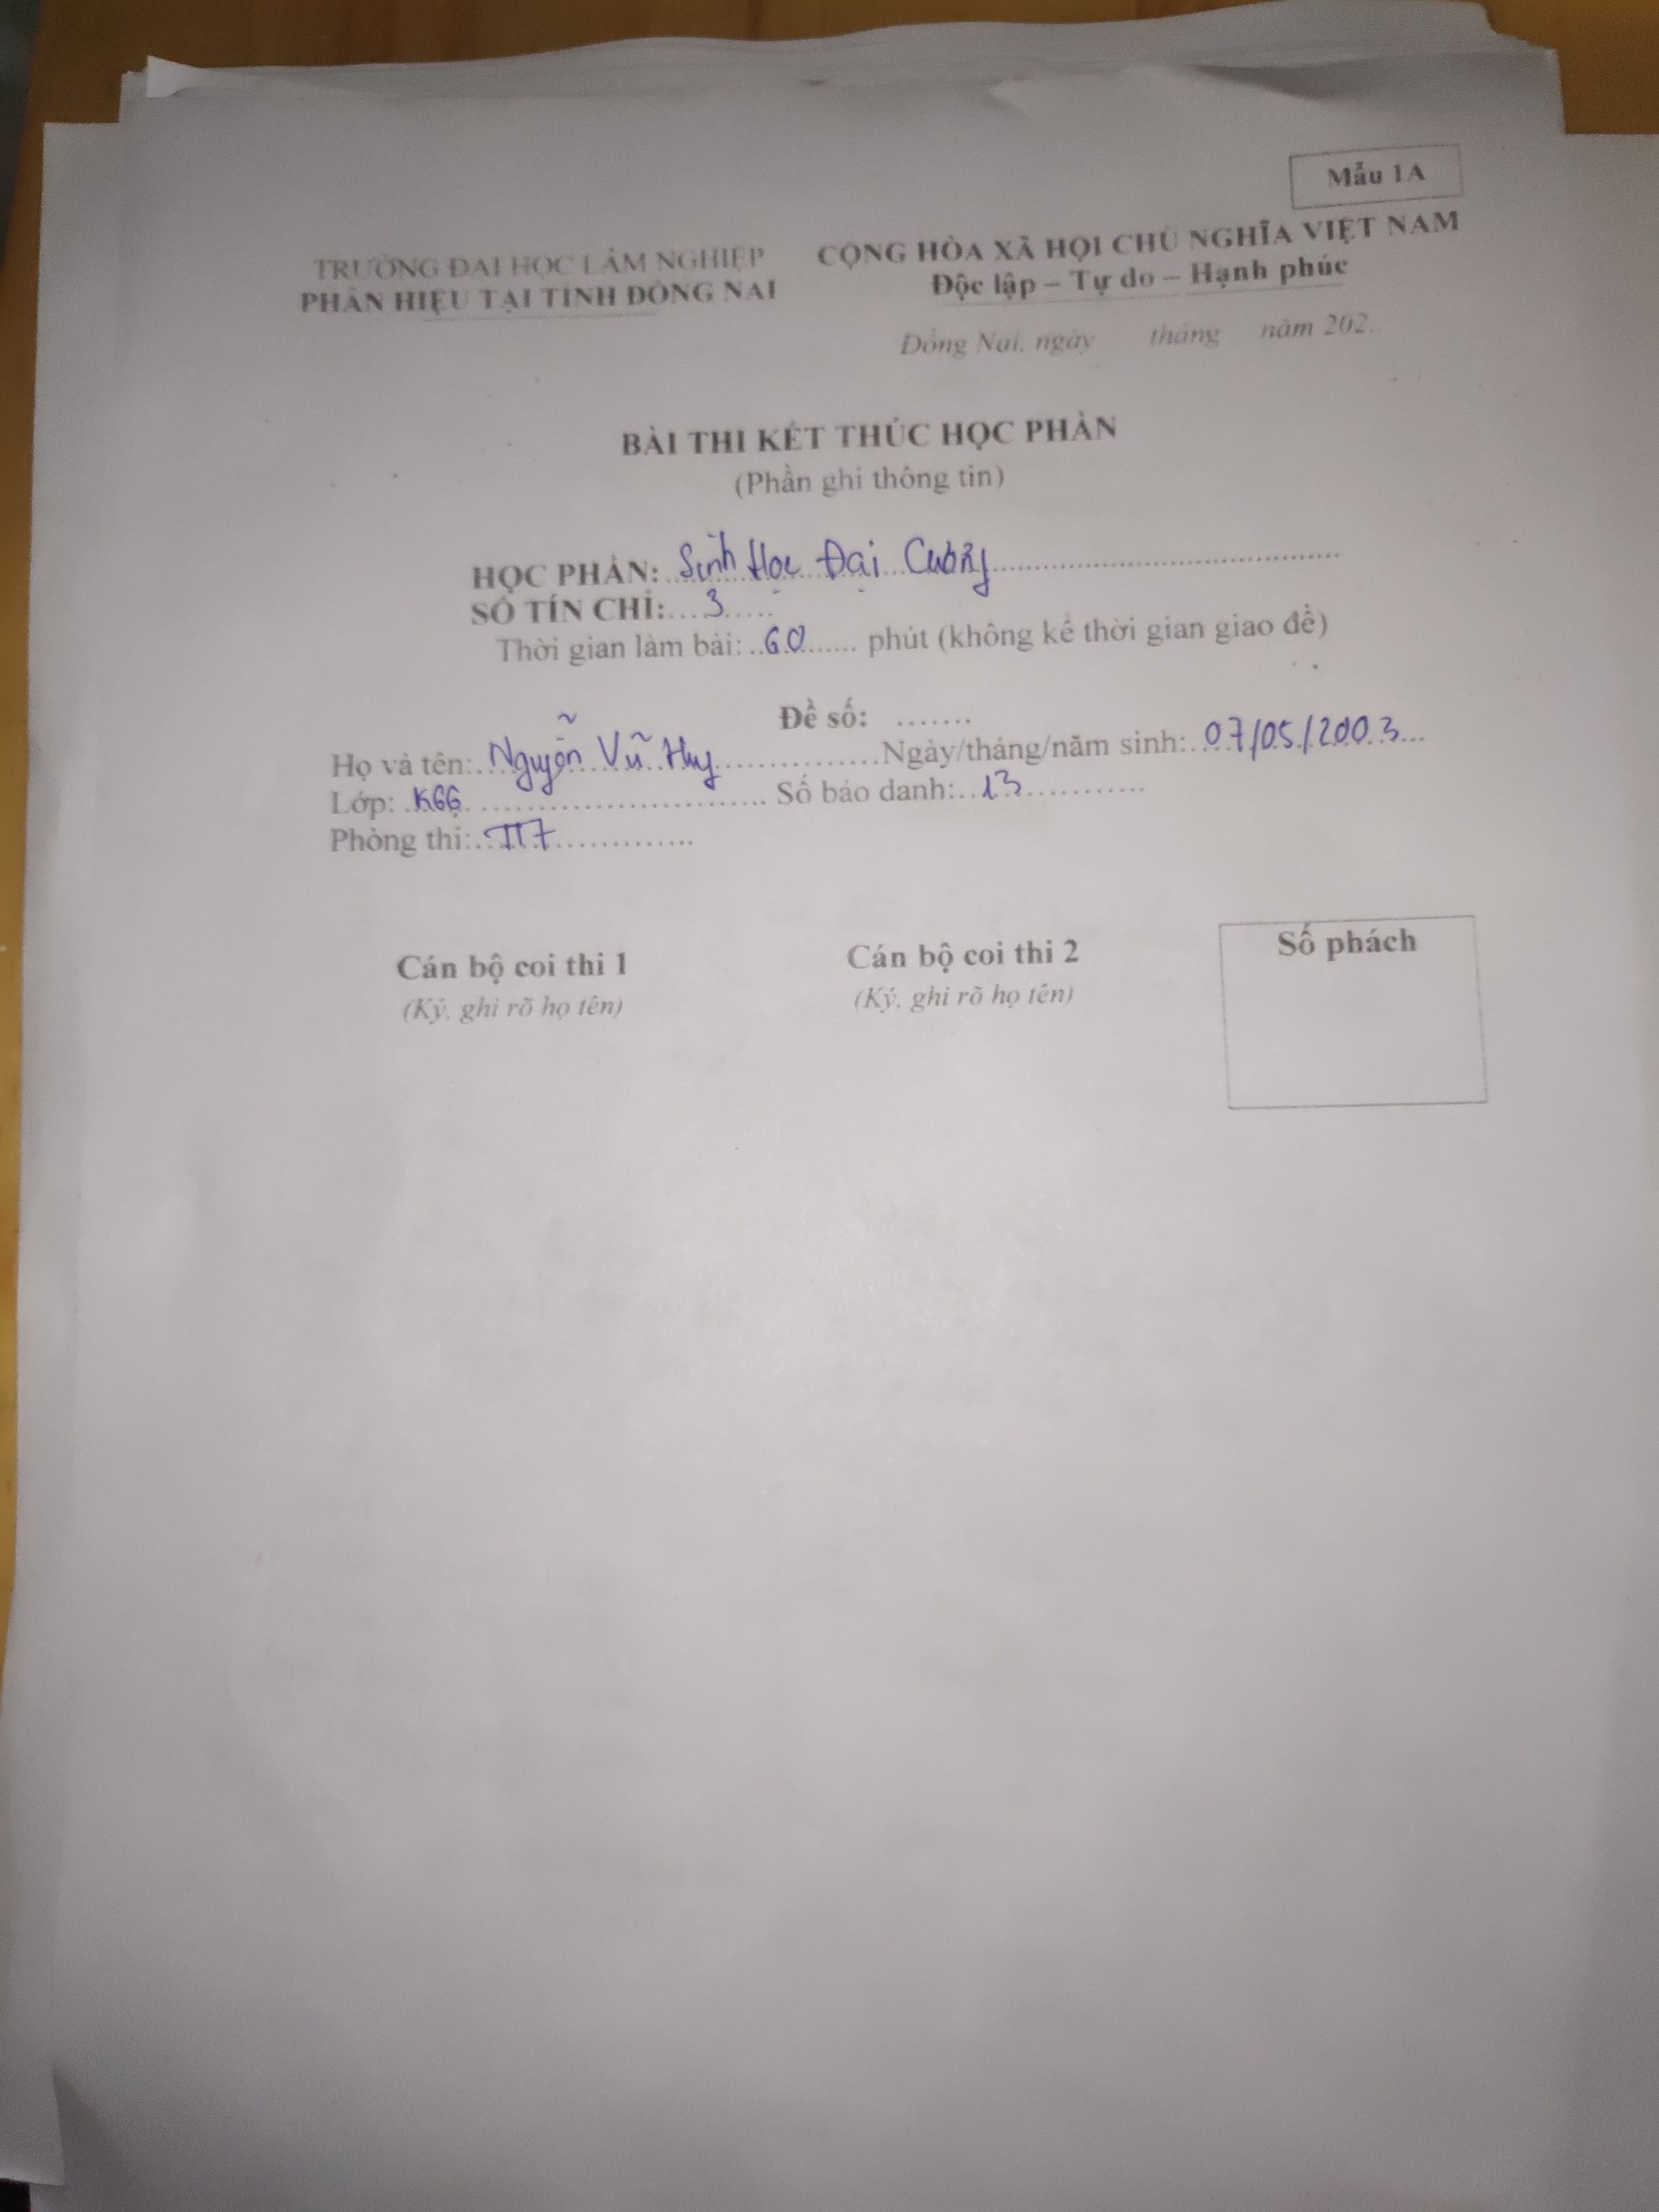 Mẫu 1A
TRƯỜNG ĐẠI HỌC LÂM NGHIỆP
PHÂN HIỆU TẠI TỈNH ĐỒNG NAI
CỘNG HÒA XÃ HỘI CHỦ NGHĨA VIỆT NAM
Độc lập – Tự do – Hạnh phúc
Đồng Nai, ngày tháng năm 202..
BÀI THI KẾT THÚC HỌC PHẦN
(Phần ghi thông tin)
HỌC PHẦN: Sinh Học Đại Cương
SỐ TÍN CHỈ: 3
Thời gian làm bài: 60 phút (không kể thời gian giao đề)
Đề số: .......
Họ và tên: Nguyễn Vũ Huy Ngày/tháng/năm sinh: 07/05/2003
Lớp: K66 Số báo danh: 13
Phòng thi:
Cán bộ coi thi 1
(Ký, ghi rõ họ tên)
Cán bộ coi thi 2
(Ký, ghi rõ họ tên)
Số phách